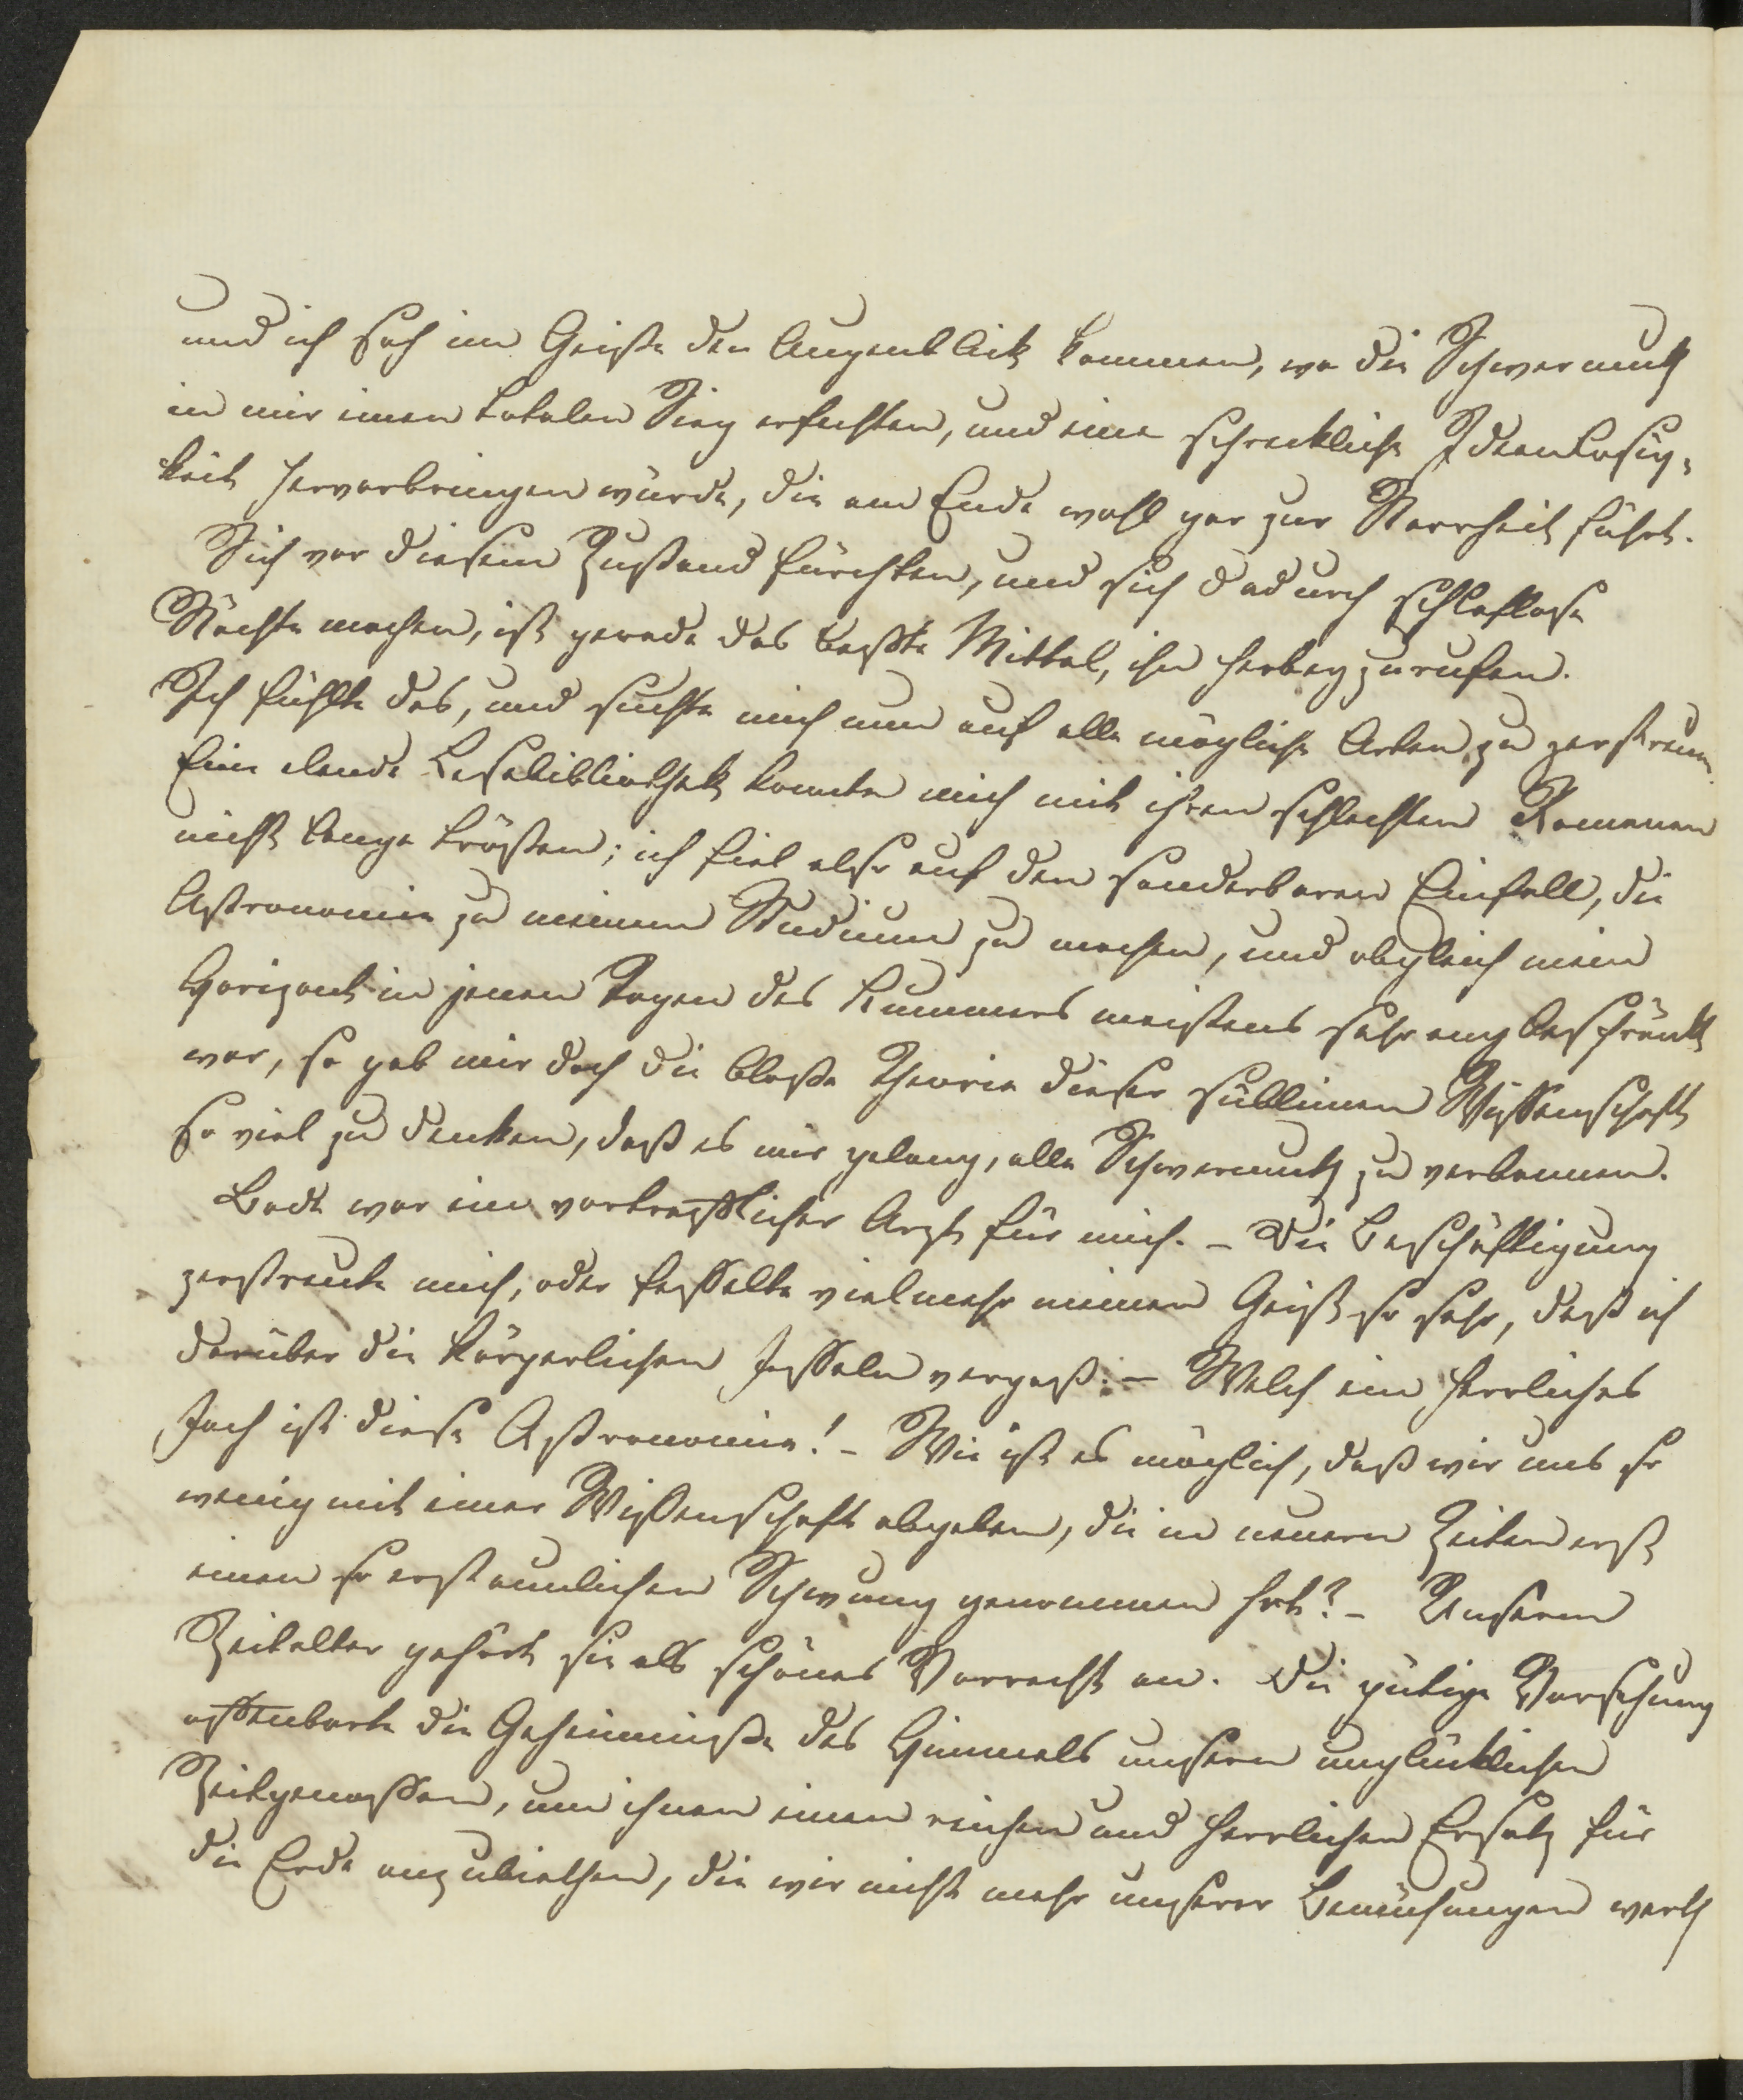 und ich sah im Geiste den Augenblick kommen, wo die Schwermuth
in mir einen totalen Sieg erfechten, und eine schreckliche Ideenlosig-
keit hervorbringen würde, die am Ende wohl gar zur Narrheit führt.
Sich vor diesem Zustand fürchten, und sich dadurch schlaflose
Nächte machen, ist gerade das beßte Mittel, ihn herbeyzurufen.
Ich fühlte das, und suchte mich nun auf alle mögliche Arten zu zerstreun.
Eine elende Lesebibliothek konnte mich mit ihren schlechten Romanen
nicht lange trösten; ich fiel also auf den sonderbaren Einfall, die
Astronomie zu meinem Studium zu machen, und obgleich mein
Horizont in jenen Tagen des Kummers meistens sehr eng beschränkt
war, so gab mir doch die bloße Theorie dieser süblimen Wissenschaft
so viel zu denken, daß es mir gelang, alle Schwermuth zu verbannen.
Bode war ein vortrefflicher Arzt für mich. – Die Beschäftigung
zerstreute mich, oder fesselte vielmehr meinen Geist so sehr, daß ich
darüber die körperlichen Fesseln vergaß. – Welch ein herrliches
Fach ist diese Astronomie! – Wie ist es möglich, daß wir uns so
wenig mit einer Wissenschaft abgeben, die in neuern Zeiten erst
einen so erstaunlichen Schwung genommen hat? – Unserm
Zeitalter gehört sie als schönes Vorrecht an. Die gütige Vorsehung
offenbarte die Geheimniße des Himmels unsern unglücklichen
Zeitgenossen, um ihnen einen reichen und herrlichen Ersatz für
die Erde anzubiethen, die wir nicht mehr unserer Bemühungen werth